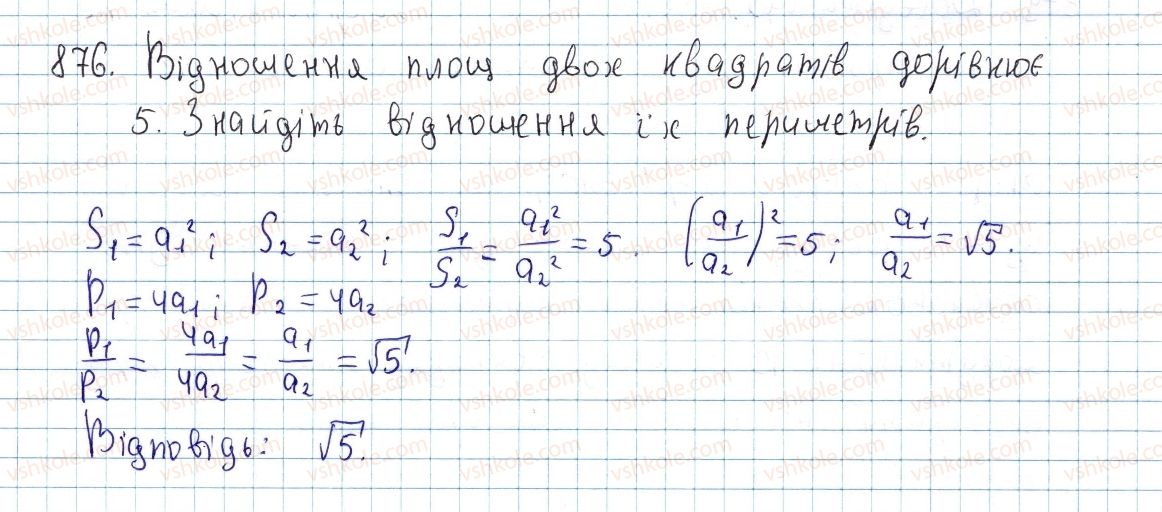 876. Відношення площ двох квадратів дорівнює
5. Знайдіть відношення їх периметрів.
S₁ = a₁²; S₂ = a₂²; S₁/S₂ = a₁²/a₂² = 5. (a₁/a₂)² = 5; a₁/a₂ = √5.
P₁ = 4a₁; P₂ = 4a₂
P₁/P₂ = 4a₁/4a₂ = a₁/a₂ = √5.
Відповідь: √5.